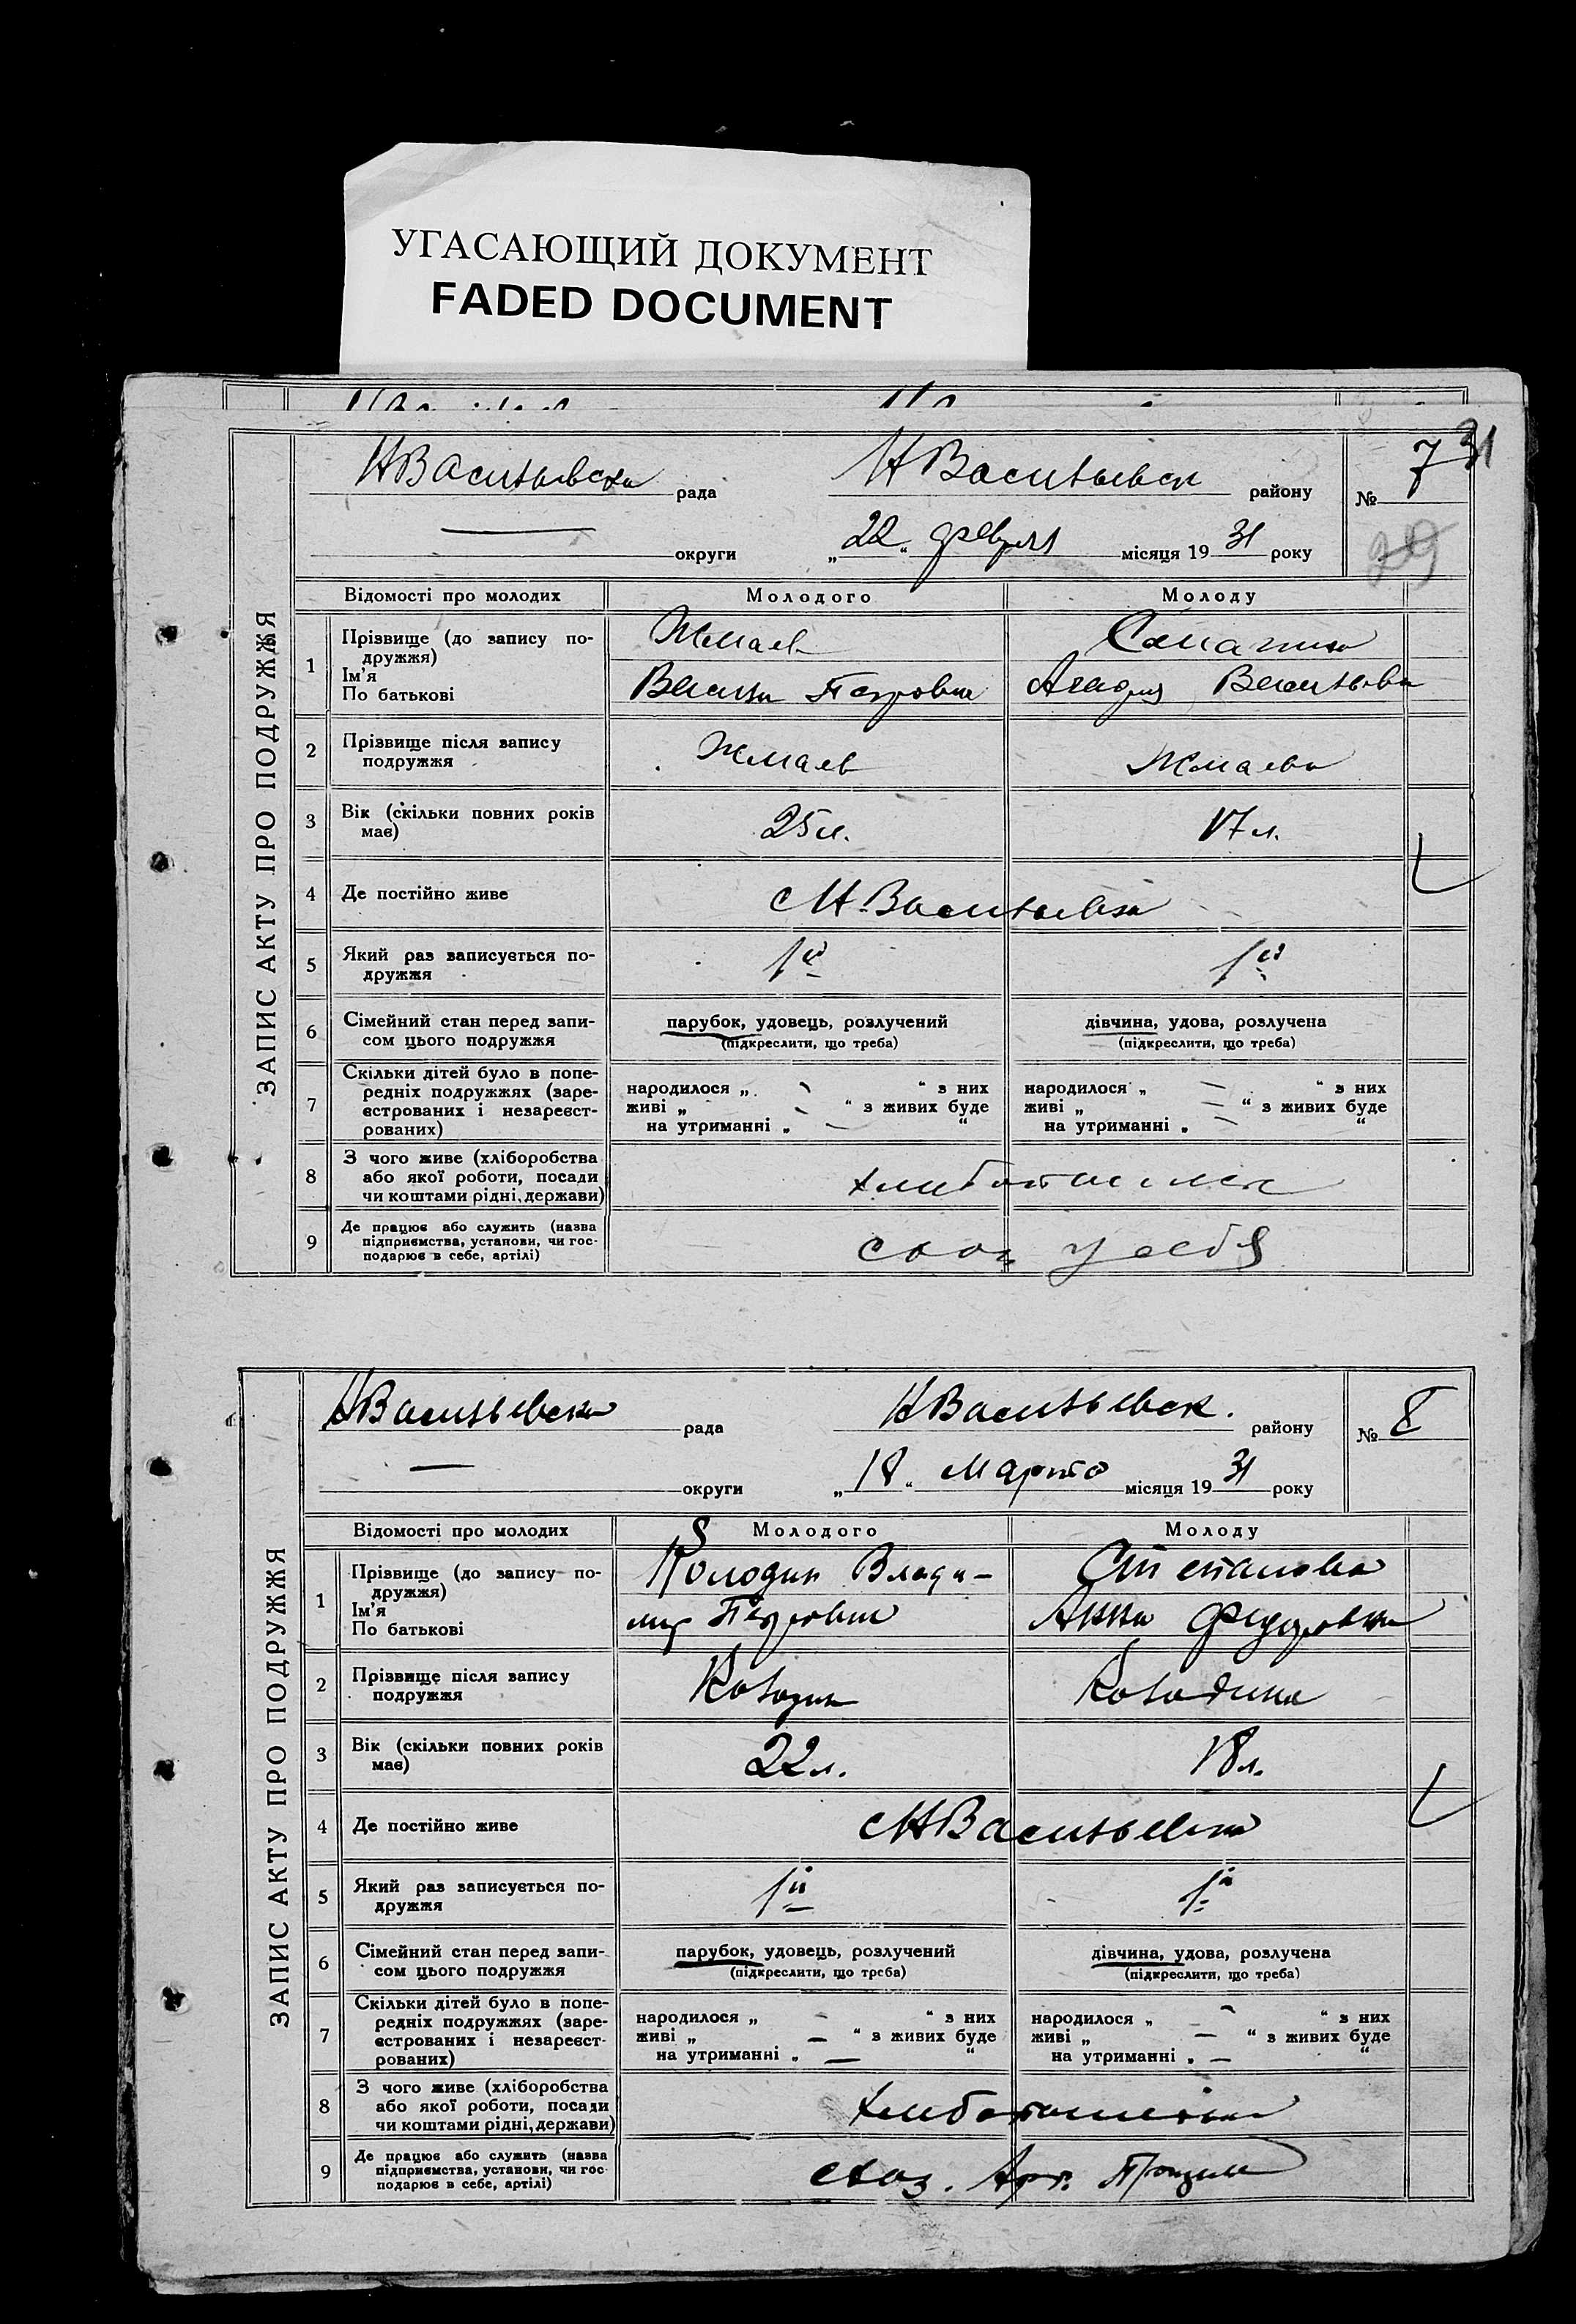 УГАСАЮЩИЙ ДОКУМЕНТ
FADED DOCUMENT
31
ЗАПИС АКТУ ПРО ПОДРУЖЖЯ
НВасильевск рада НВасильевск району № 7
— округи „22“ февраля місяця 1931 року
29
Відомості про молодих Молодого Молоду
1 Прізвище (до запису подружжя)
Ім'я
По батькові
Жмаев
Петрович
Васильевн
2 Прізвище після запису
подружжя
Жмаев Жмаева
3 Вік (скільки повних років
має)
25 л. 17 л.
4 Де постійно живе
с Н-Васильевка
5 Який раз записується по-
дружжя
1й 1й
6 Сімейний стан перед запи-
сом цього подружжя
парубок, удовець, розлучений
(підкреслити, що треба)
дівчина, удова, розлучена
(підкреслити, що треба)
7 Скільки дітей було в попе-
редніх подружжях (заре-
єстрованих і незареєст-
рованих)
народилося „ - “ з них
живі „ - “ з живих буде
на утриманні „ - “
народилося „ - “ з них
живі „ - “ з живих буде
на утриманні „ - “
8 З чого живе (хліборобства
або якої роботи, посади
чи коштами рідні, держави)
9 Де працює або служить (назва
підприємства, установи, чи гос-
подарює в себе, артілі)
у себя
ЗАПИС АКТУ ПРО ПОДРУЖЖЯ
НВасильевск рада НВасильевск. району № 8
— округи „18“ Марта місяця 1931 року
Відомості про молодих Молодого Молоду
1 Прізвище (до запису по-
дружжя)
Ім'я
По батькові
Колодин Влади-
мир Петрович
Степанова
Анна Федоровна
2 Прізвище після запису
подружжя
Колодин Колодина
3 Вік (скільки повних років
має)
22 л. 18 л.
4 Де постійно живе
с НВасильевка
5 Який раз записується по-
дружжя
1й 1й
6 Сімейний стан перед запи-
сом цього подружжя
парубок, удовець, розлучений
(підкреслити, що треба)
дівчина, удова, розлучена
(підкреслити, що треба)
7 Скільки дітей було в попе-
редніх подружжях (заре-
єстрованих і незареєст-
рованих)
народилося „ - “ з них
живі „ - “ з живих буде
на утриманні „ - “
народилося „ - “ з них
живі „ - “ з живих буде
на утриманні „ - “
8 З чого живе (хліборобства
або якої роботи, посади
чи коштами рідні, держави)
9 Де працює або служить (назва
підприємства, установи, чи гос-
подарює в себе, артілі)
Арт.